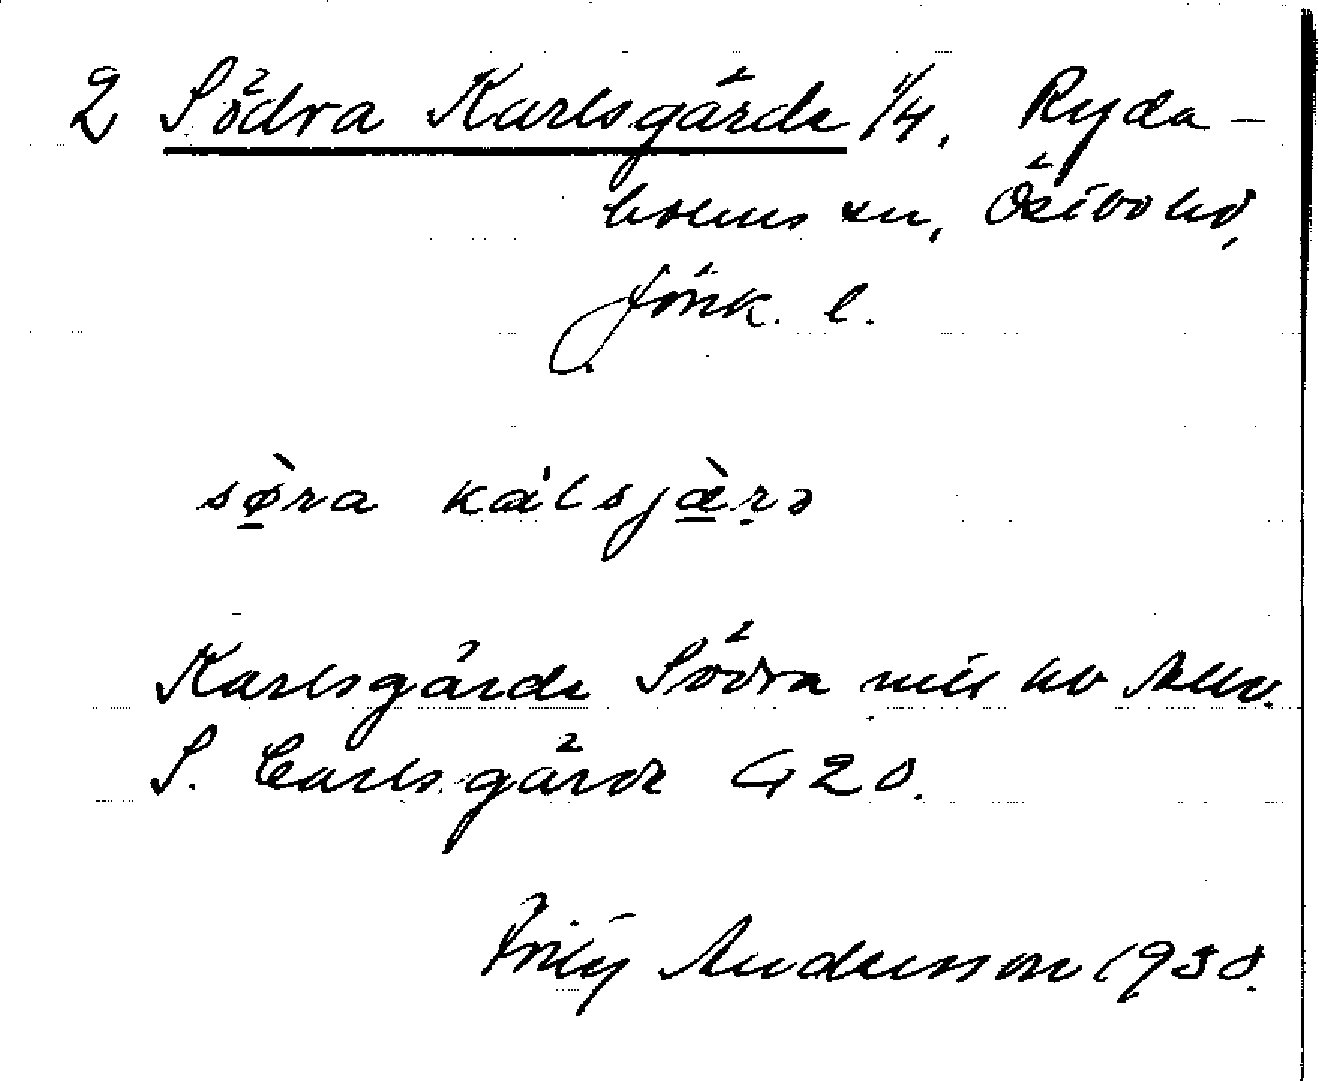 2 Södra Karlsgårde 1/4. Ryda-
holms sn, Östbo hd,
Jönk. l.
sø̱̀ra kálsjæ̱̀ṛə
Karlsgårde Södra
S. Carlsgårde G 20.
Fritz Andersson 1938.